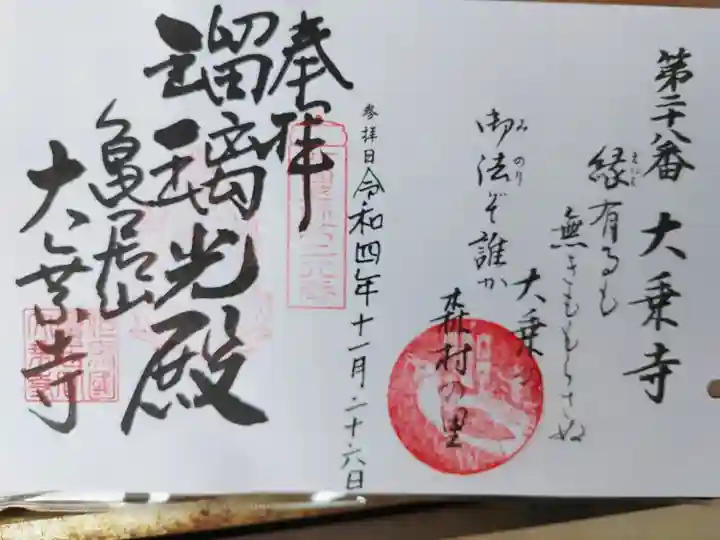 第二十八番 大乗寺
縁有るも
えにし
無きももらさぬ
御法ぞ誰か
みのり
大乗
森村の里
参拝日令和四年十一月二十六日
奉拝
瑠璃光殿
亀居山
大乗寺